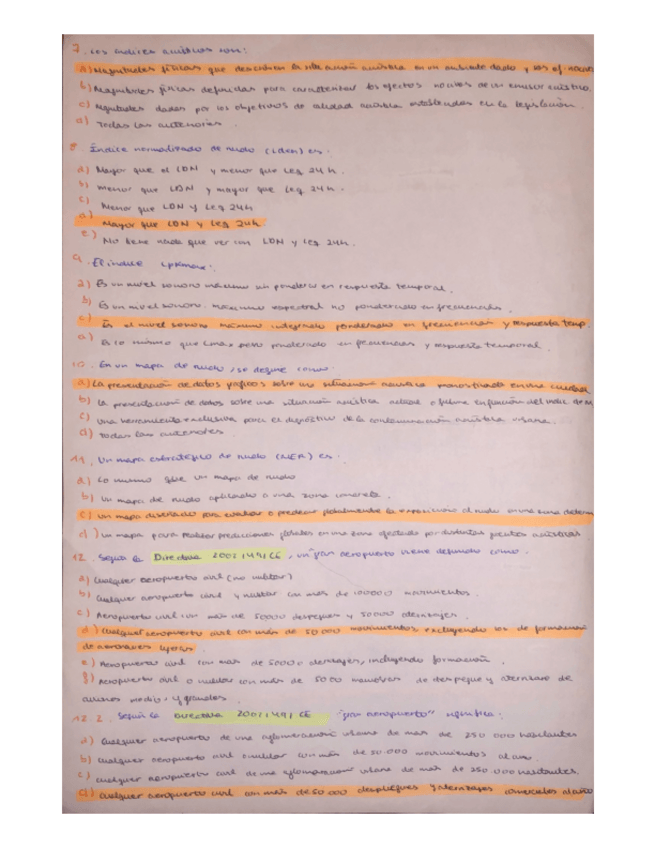 7. Los índices acústicos son:
a) Magnitudes físicas que describen la situación acústica en un ambiente dado y los ef. nocivos
b) Magnitudes físicas definidas para caracterizar los efectos nocivos de un emisor acústico.
c) Magnitudes dadas por los objetivos de calidad acústica establecidas en la legislación.
d) Todas las anteriores.
8. Índice normalizado de ruido (Lden) es:
a) Mayor que el LDN y menor que Leq 24h.
b) menor que LDN y mayor que Leq 24h.
c) Menor que LDN y Leq 24h
d) Mayor que LDN y Leq 24h.
e) No tiene nada que ver con LDN y Leq 24h.
9. El índice Lpkmax:
a) Es un nivel sonoro máximo sin ponderar en respuesta temporal.
b) Es un nivel sonoro máximo espectral no ponderado en frecuencias.
c) Es el nivel sonoro máximo integrado ponderado en frecuencias y respuesta temp.
d) Es lo mismo que Lmax pero ponderado en frecuencias y respuesta temporal.
10. En un mapa de ruido, se define como:
a) La presentación de datos gráficos sobre una situación acústica en una ciudad
b) La presentación de datos sobre una situación acústica actual o en función del indic. de
c) Una herramienta exclusiva para el diagnóstico de la contaminación acústica urbana.
d) Todas las anteriores
11. Un mapa estratégico de ruido (MER) es:
a) Lo mismo que un mapa de ruido
b) Un mapa de ruido aplicado a una zona concreta.
c) Un mapa diseñado para evaluar o predecir globalmente la exposición al ruido en una zona determ
d) Un mapa para realizar predicciones globales en una zona afectada por distintas fuentes acústicas
12. Según la Directiva 2002/49/CE, un gran aeropuerto viene definido como:
a) Cualquier aeropuerto civil (no militar)
b) Cualquier aeropuerto civil y militar con más de 100000 movimientos.
c) Aeropuerto civil con más de 50000 despegues y 50000 aterrizajes.
d) Cualquier aeropuerto civil con más de 50.000 movimientos, excluyendo los de formación
de aeronaves ligeras.
e) Aeropuerto civil con más de 50000 aterrizajes, incluyendo formación.
f) Aeropuerto civil o militar con más de 5000 maniobras de despegue y aterrizaje de
aviones medios y grandes.
12.2. Según la Directiva 2002/49/CE "gran aeropuerto" significa:
a) Cualquier aeropuerto de una aglomeración urbana de más de 250 000 habitantes
b) Cualquier aeropuerto civil o militar con más de 50.000 movimientos al año.
c) Cualquier aeropuerto civil de una aglomeración urbana de más de 250 000 habitantes.
d) Cualquier aeropuerto civil con más de 50 000 despegues y aterrizajes comerciales al año